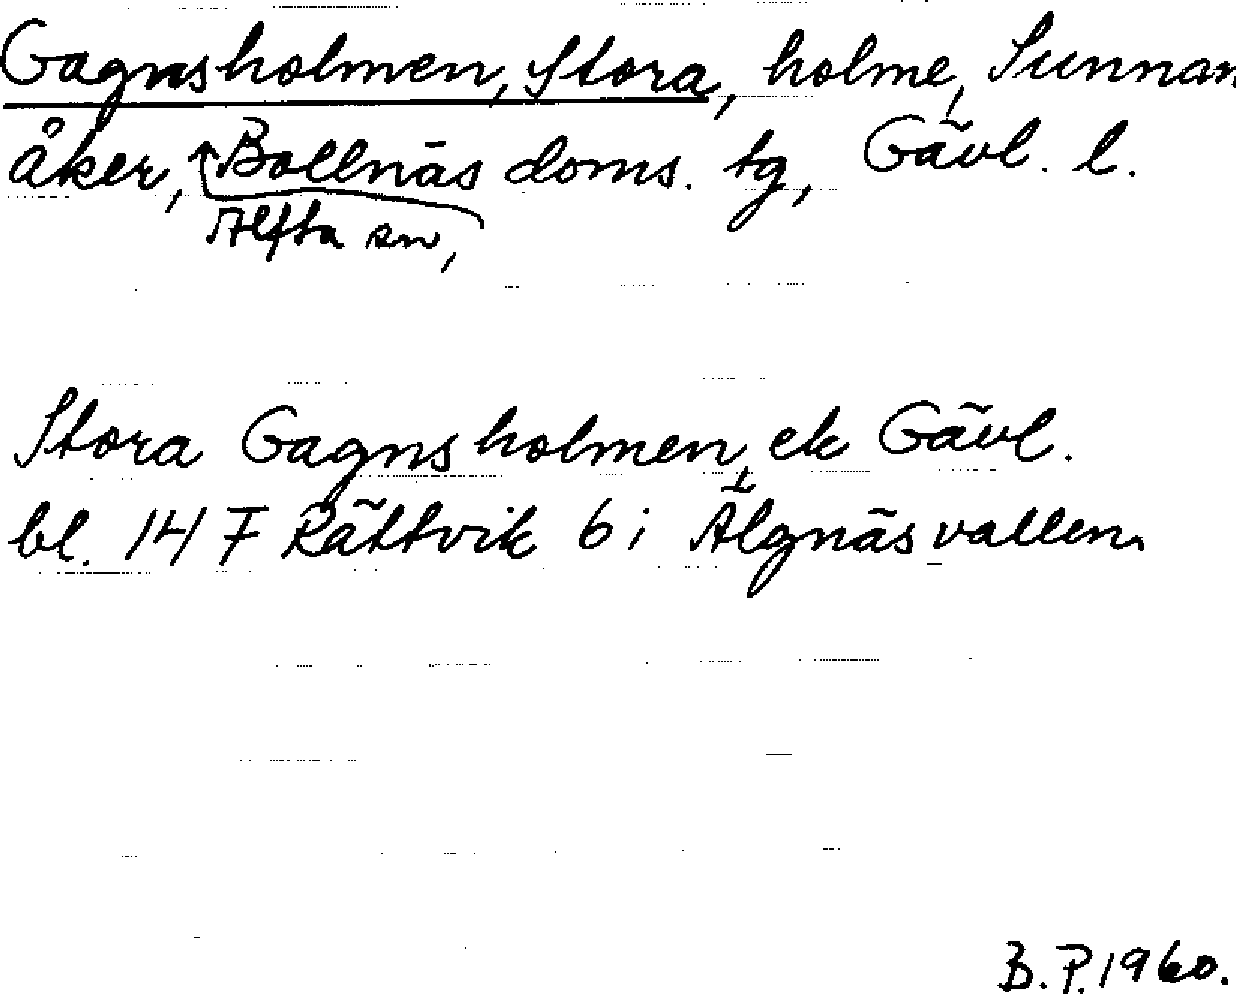 Gagnsholmen, Stora, holme, Sunnan
åker, Bollnäs doms. tg, Gävl. l.
Alfta sn,
Stora Gagnsholmen, ek Gävl.
bl. 14 F Rättvik 6 i Älgnäsvallen.
B.P. 1960.